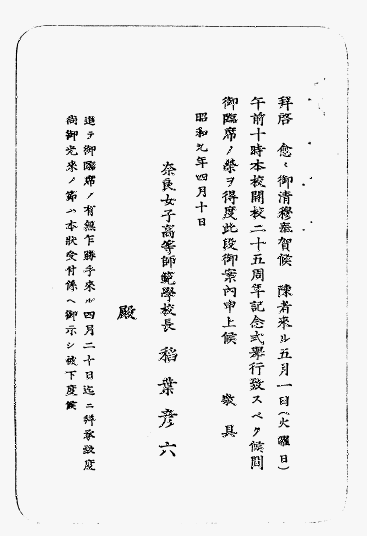 拜啓 愈々御清穆奉賀候 陳者來ル五月一日(火曜日)
午前十時本校開校二十五周年記念式擧行致スベク候間
御臨席ノ榮ヲ得度此段御案內申上候 敬具
昭和九年四月十日
奈良女子高等師範學校長 稻葉彥六
殿
追テ御臨席ノ有無乍勝手來ル四月二十日迄ニ拜承致度
尚御光來ノ節ハ本狀受付係ヘ御示シ被下度候